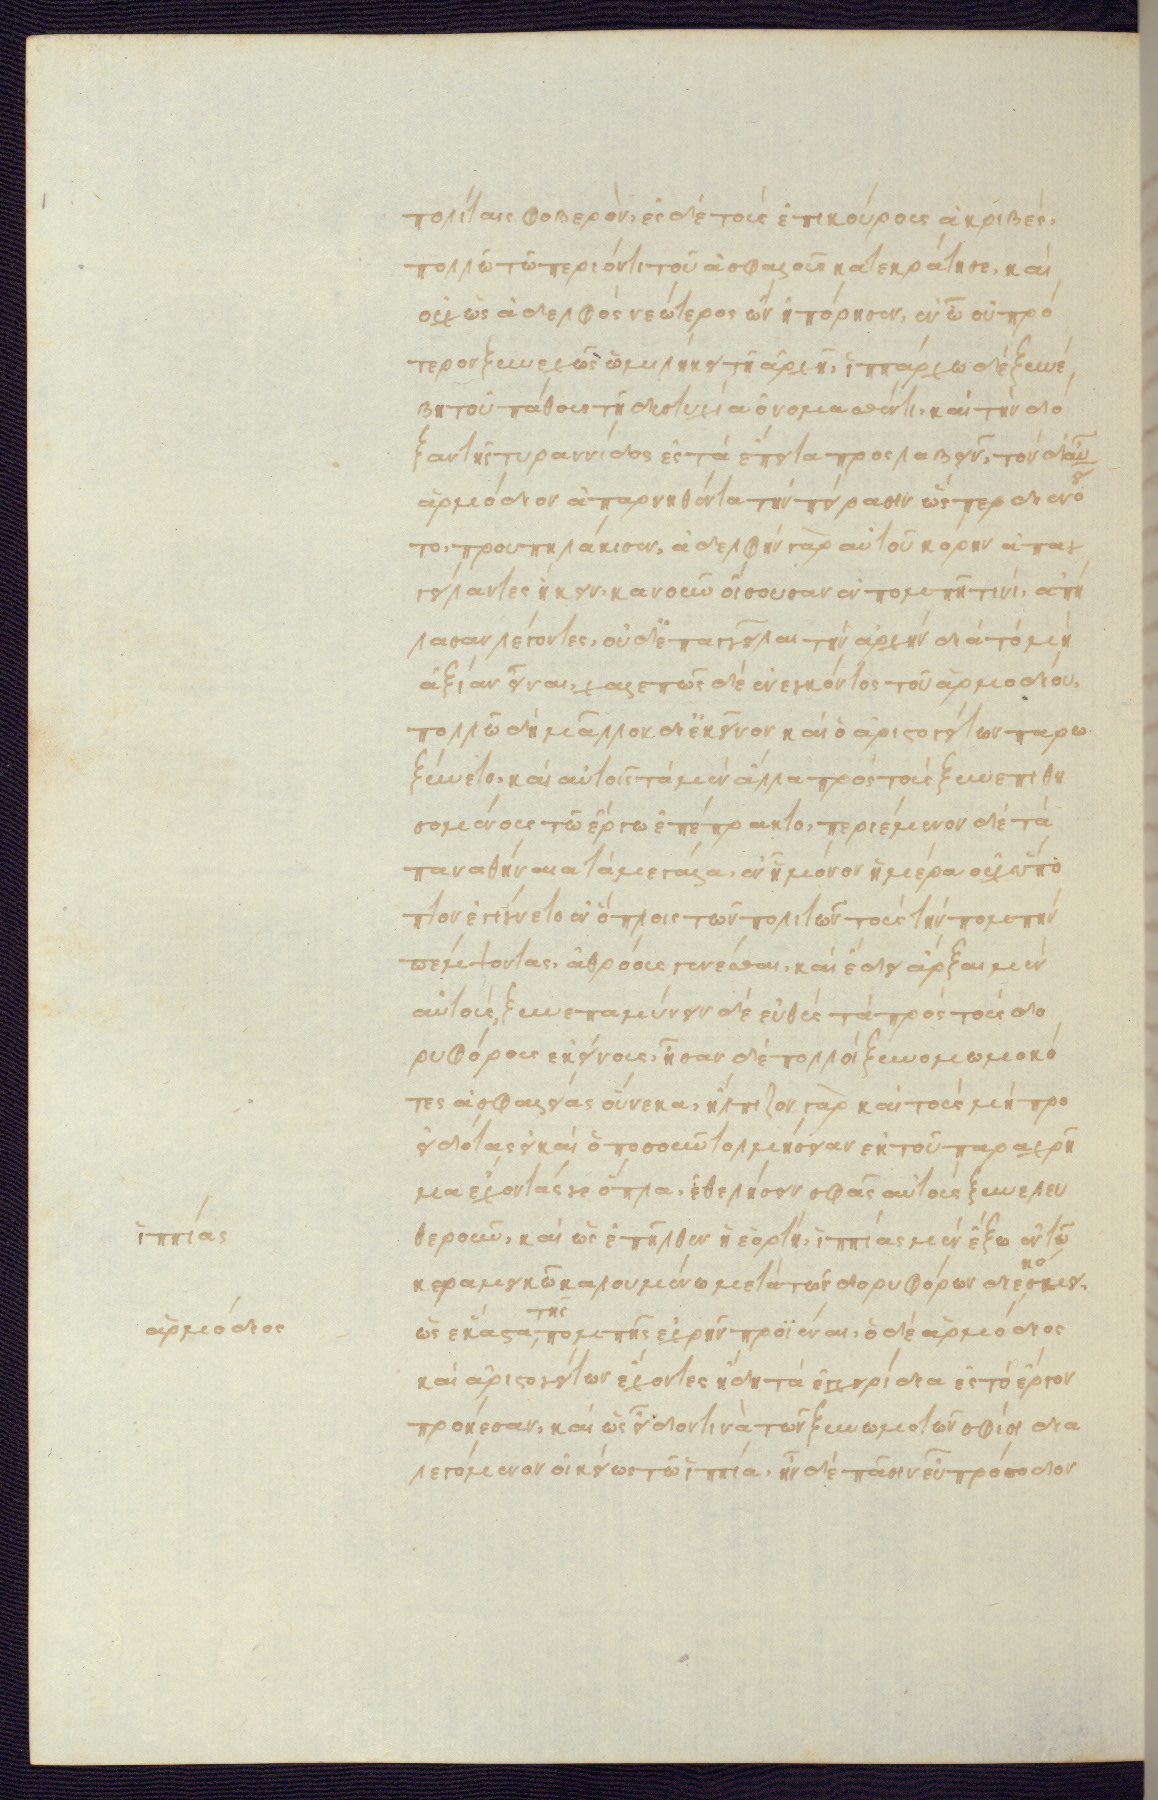 πολίταις φοβερὸν, ἐς δὲ τοὺς ἐπικούρους ἀκριβὲς,
πολλῶ τῶ περιόντι τοῦ ἀσφαλοῦς κατεκράτησε, καὶ
οὐχ ὡς ἀδελφὸς νεώτερος ὢν ἠπόρησεν, ἐν ὧ οὐ πρό
τερον ξυνεχῶς ὡμιλήκει τῆ ἀρχῆ, ἱππάρχω δὲ ξυνέ
βη τοῦ πάθους τῆ δυστυχία ὀνομασθέντι, καὶ τὴν δό
ξαν τῆς τυραννίδος ἐς τὰ ἔπειτα προσλαβεῖν, τὸν δ' οὖν
ἁρμόδιον ἀπαρνηθέντα τὴν πείρασιν ὥσπερ διενοεῖ
το, προυπηλάκισεν, ἀδελφὴν γὰρ αὐτοῦ κόρην ἐπαγ
γείλαντες ἥκειν, κανοῦν οἴσουσαν ἐν πομπῆ τινί, ἀπή
λασαν λέγοντες, οὐδὲ παγγεῖλαι τὴν ἀρχὴν διὰ τὸ μὴ
ἀξίαν εἶναι, χαλεπῶς δὲ ἐνεγκόντος τοῦ ἁρμοδίου,
πολλῶ δὴ μᾶλλον δι' ἐκεῖνον καὶ ὁ ἀριστογείτων παρω
ξύνετο, καὶ αὐτοῖς τὰ μὲν ἄλλα πρὸς τοὺς ξυνεπιθη
σομένους τῶ ἔργω ἐπέπρακτο, περιέμενον δὲ τὰ
παναθήναια τὰ μεγάλα, ἐν ἧ μόνον ἡμέρα οὐχ ὕπο
πτον ἐγίγνετο ἐν ὅπλοις τῶν πολιτῶν τοὺς τὴν πομπὴν
πέμψοντας, ἀθρόους γενέσθαι, καὶ ἔδει ἄρξαι μὲν
αὐτοὺς, ξυνεπαμύνειν δὲ εὐθὺς τὰ πρὸς τοὺς δο
ρυφόρους ἐκείνους, ἦσαν δὲ πολλοὶ ξυνομωμοκό
τες ἀσφαλείας οὕνεκα, ἤλπιζον γὰρ καὶ τοὺς μὴ προ
ειδότας εἰ καὶ ὁποσοιοῦν τολμήσειαν ἐκ τοῦ παραχρῆ
μα ἔχοντάς γε ὅπλα, ἐθελήσειν σφᾶς αὐτοὺς ξυνελευ
ἱππίας
θεροῦν, καὶ ὡς ἐπῆλθεν ἡ ἑορτὴ, ἱππίας μὲν ἔξω ἐν τῶ
κεραμεικῶ καλουμένω μετὰ τῶν δορυφόρων διεκόσμει,
ἁρμόδιος
ὡς ἕκαστα τῆς πομπῆς ἐχρῆν προϊέναι, ὁ δὲ ἁρμόδιος
καὶ ἀριστογείτων ἔχοντες ἤδη τὰ ἐγχειρίδια ἐς τὸ ἔργον
προήεσαν, καὶ ὡς εἶδόν τινὰ τῶν ξυνωμοτῶν σφίσι δια
λεγόμενον οἰκείως τῶ ἱππία, ἦν δὲ πᾶσιν εὐπρόσοδον